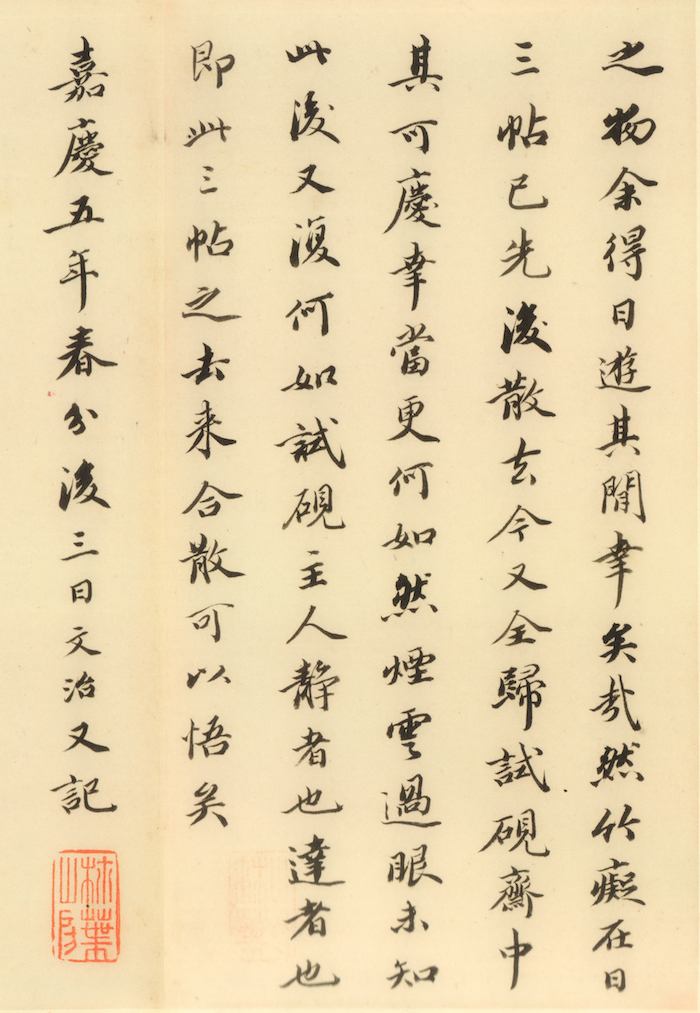 之物余得日遊其閒幸矣哉然竹癡在日
三帖已先後散去今又全歸試硯齋中
其可慶幸當更何如然煙雲過眼未知
此後又復何如試硯主人靜者也達者也
即此三帖之去来合散可以悟矣
嘉慶五年春分後三日文治又記